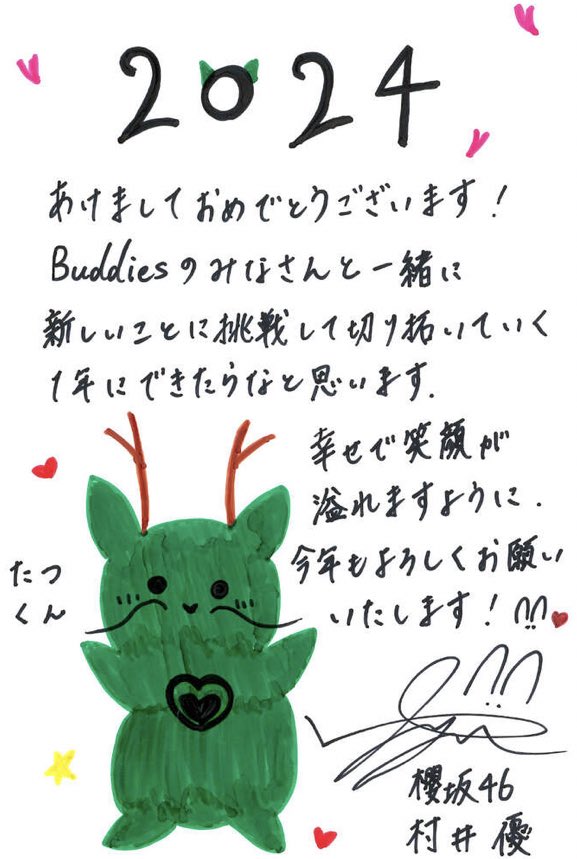 2024
あけましておめでとうございます!
Buddiesのみなさんと一緒に
新しいことに挑戦して切り拓いていく
1年にできたらなと思います.
幸せで笑顔が
溢れますように.
今年もよろしくお願い
いたします!
たつ
くん
櫻坂46
村井 優